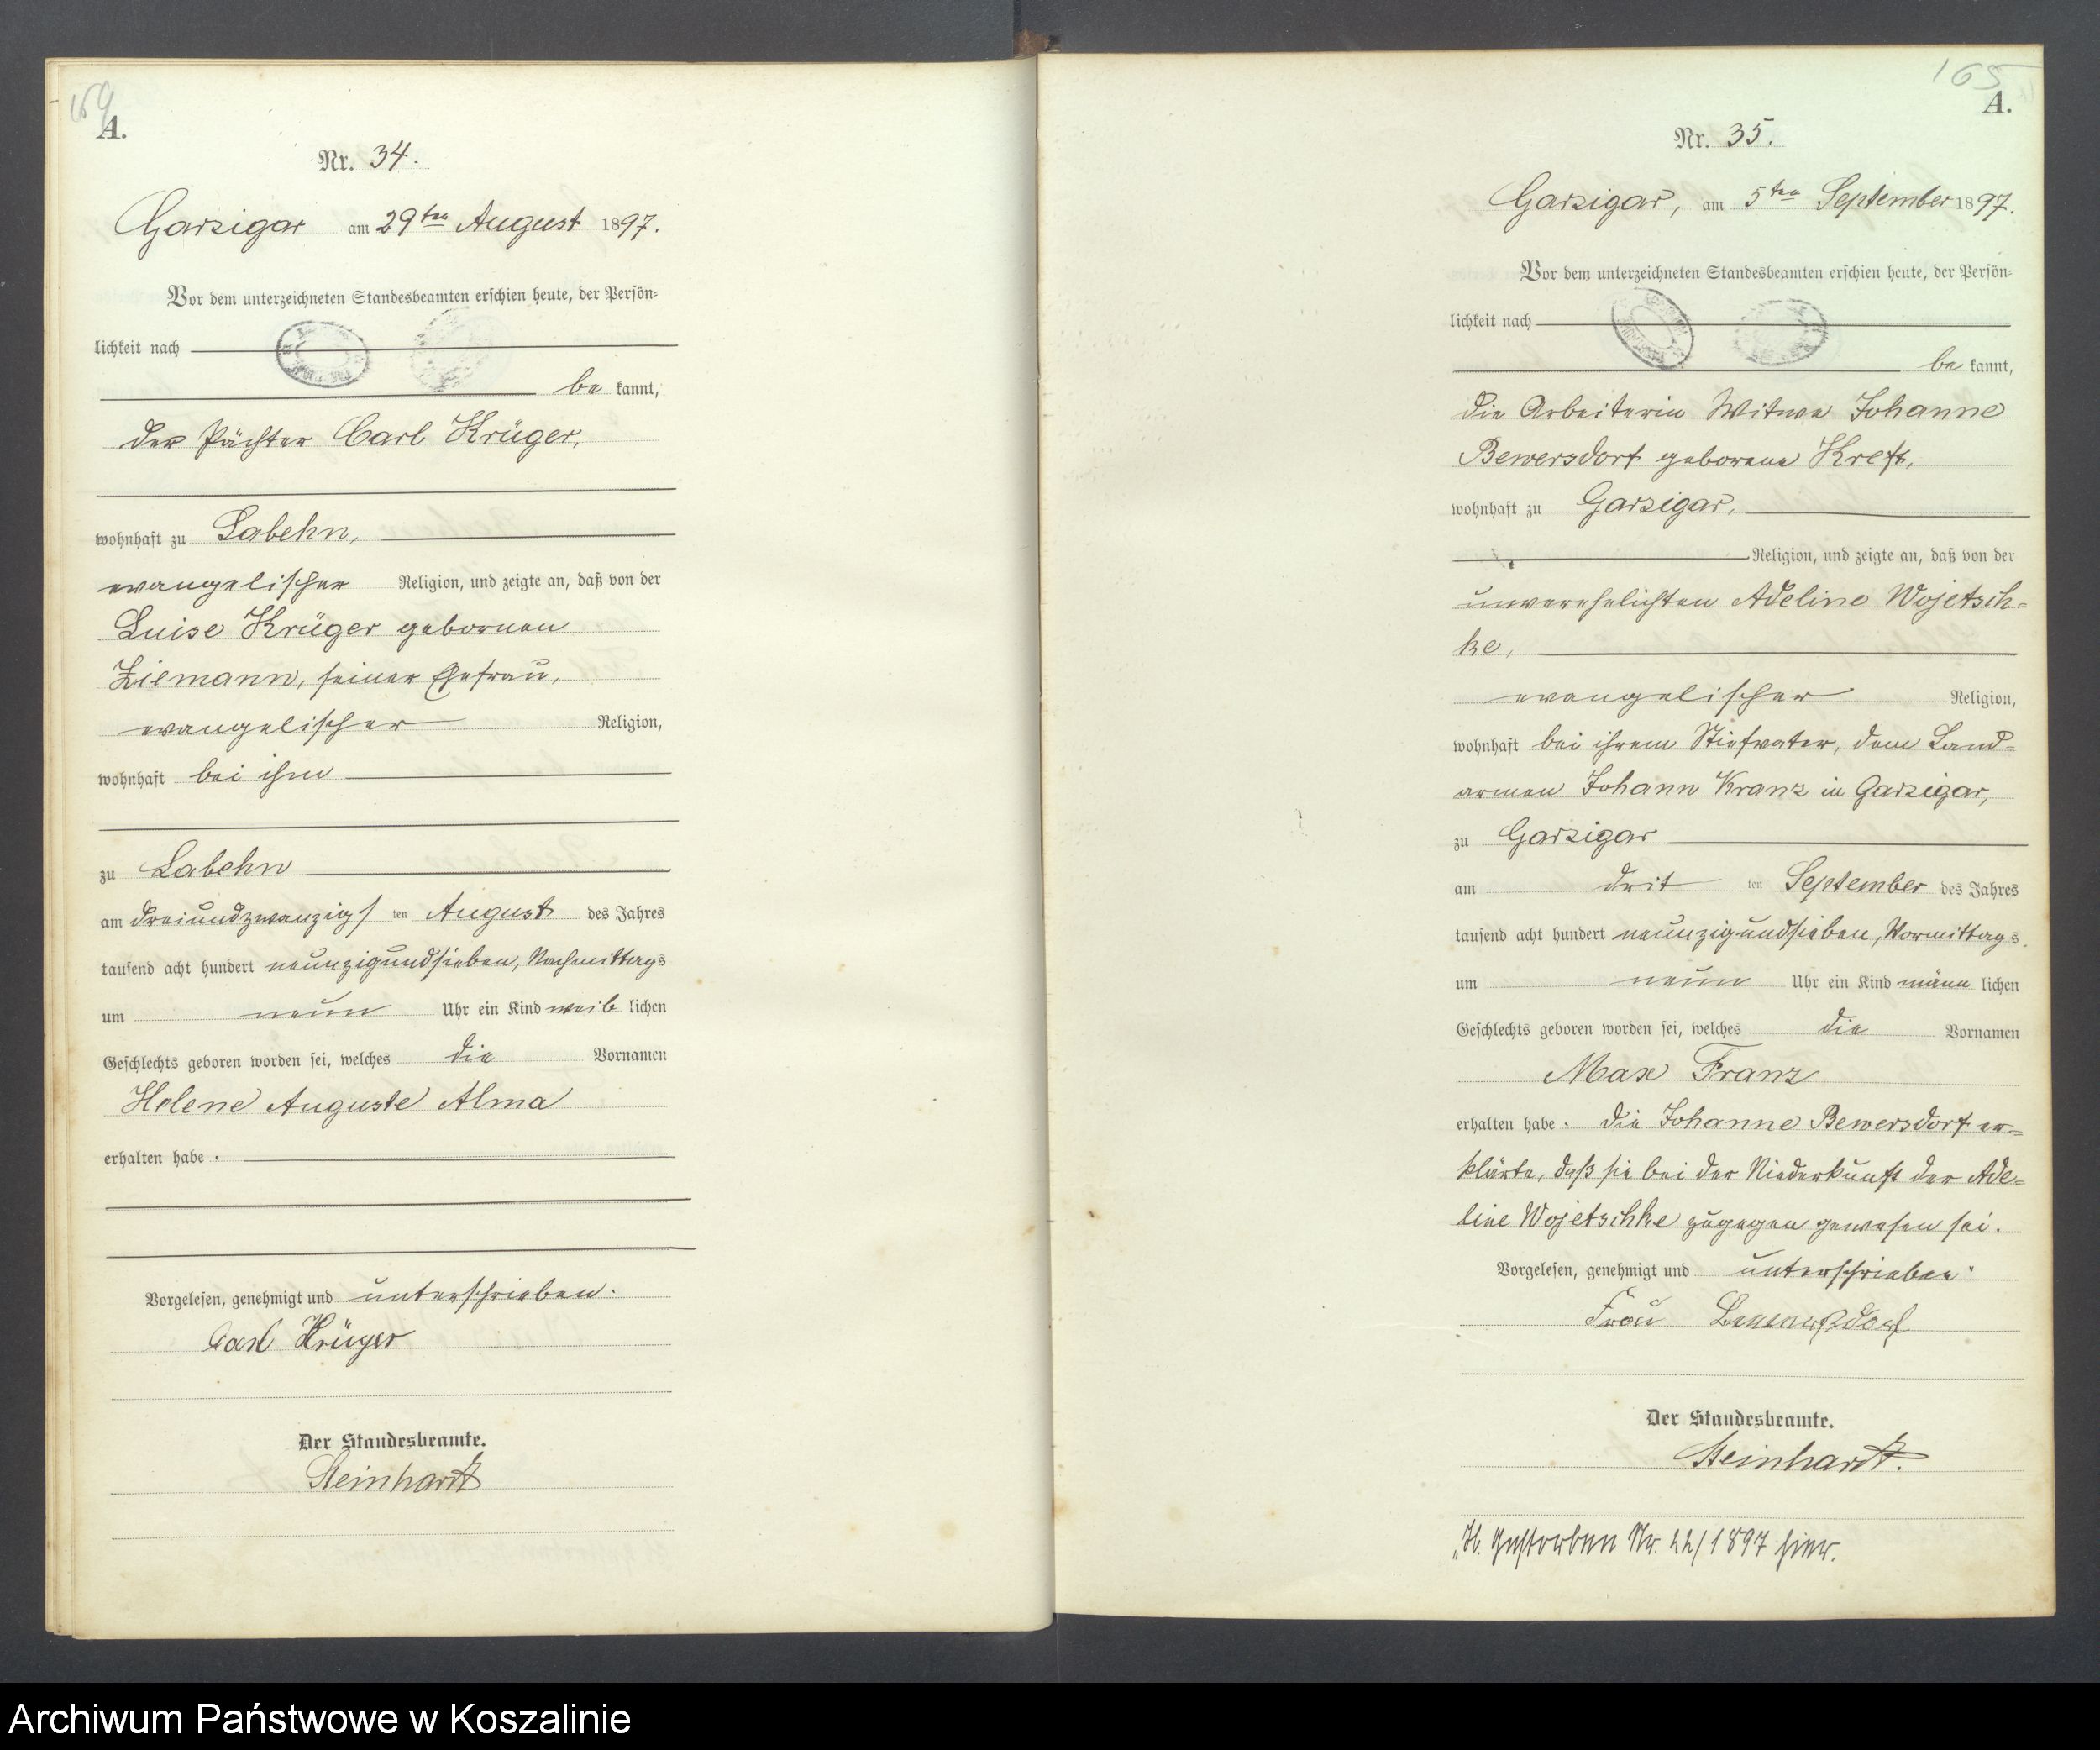 169
A.
Nr. 34.
Garzigar am 29ten August 1897.
Vor dem unterzeichneten Standesbeamten erschien heute, der Persön=
lichkeit nach
be kannt,
der Pächter Carl Krüger,
wohnhaft zu Labehn,
evangelischer Religion, und zeigte an, daß von der
Luise Krüger gebornen
Ziemann, seiner Ehefrau,
evangelischer Religion,
wohnhaft bei ihm
zu Labehn
am dreiundzwanzigs ten August des Jahres
tausend acht hundert neunzigundsieben, Nachmittags
um neun Uhr ein Kind weib lichen
Geschlechts geboren worden sei, welches die Vornamen
Helene Auguste Alma
erhalten habe.
Vorgelesen, genehmigt und unterschrieben.
Carl Krüger
Der Standesbeamte.
Steinhardt
165
A.
Nr. 35.
Garzigar, am 5ten September 1897.
Vor dem unterzeichneten Standesbeamten erschien heute, der Persön=
lichkeit nach
be kannt,
die Arbeiterin Witwe Johanne
Bewersdorf geborene Kreft,
wohnhaft zu Garzigar,
Religion, und zeigte an, daß von der
unverehelichten Adeline Wojetsch=
ke,
evangelischer Religion,
wohnhaft bei ihrem Stiefvater, dem Land=
armen Johann Kranz in Garzigar,
zu Garzigar
am drit ten September des Jahres
tausend acht hundert neunzigundsieben, Vormittags
um neun Uhr ein Kind männ lichen
Geschlechts geboren worden sei, welches die Vornamen
Max Franz
erhalten habe. die Johanne Bewersdorf er=
klärte, daß sie bei der Niederkunft der Ade=
line Wojetschke zugegen gewesen sei.
Vorgelesen, genehmigt und unterschrieben.
Frau Bewersdorf
Der Standesbeamte.
Steinhardt.
Gestorben Nr. 22/1897 hier.
Archiwum Państwowe w Koszalinie